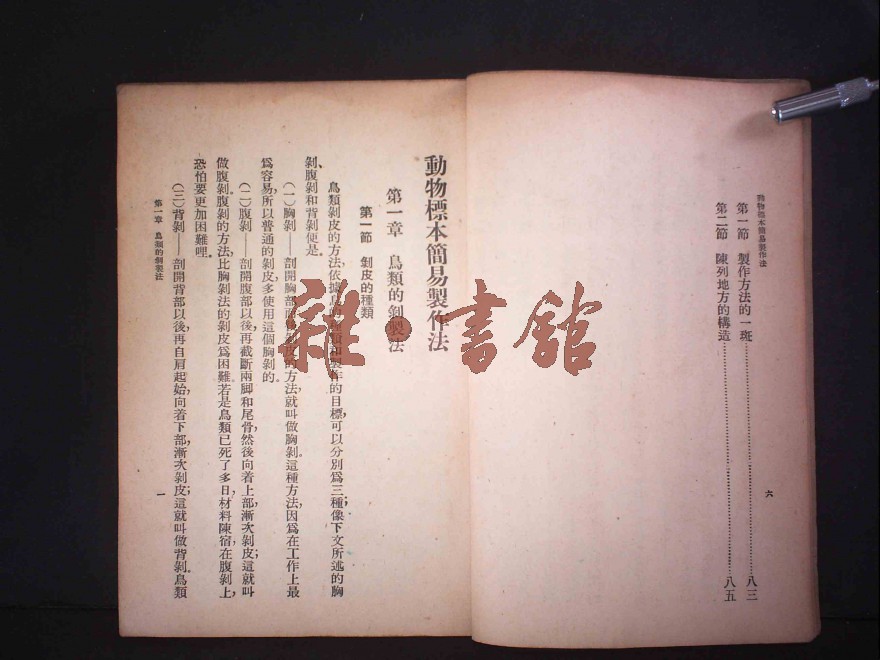 動物標本簡易製作法
第一節 製作方法的一斑……八三
第二節 陳列地方的構造……八五
六
動物標本簡易製作法
第一章 鳥類的剝製法
第一節 剝皮的種類
鳥類剝皮的方法,依據鳥的種類和製作的目標,可以分別爲三種;像下文所述的胸
剝、腹剝和背剝便是。
(一)胸剝——剖開胸部而後剝皮的方法,就叫做胸剝。這種方法,因爲在工作上最
爲容易,所以普通的剝皮,多使用這個胸剝的。
(二)腹剝——剖開腹部以後,再截斷兩脚和尾骨,然後向着上部,漸次剝皮;這就叫
做腹剝。腹剝的方法,比胸剝法的剝皮爲困難。若是鳥類已死了多日,材料陳宿,在腹剝上,
恐怕要更加困難哩。
(三)背剝——剖開背部以後,再自肩起始,向着下部,漸次剝皮;這就叫做背剝。鳥類
第一章 鳥類的剝製法
一
雜·書館